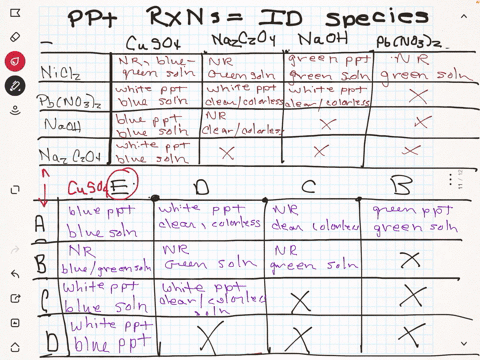 PPt RxNs = ID species
CuSO4 Na2C2O4 NaOH Pb(NO3)2
NiCl2 NR, blue- NR green ppt NR
green soln Green soln green soln green soln
Pb(NO3)2 white ppt white ppt white ppt X
blue soln clear/colorless clear/colorless
NaOH blue ppt NR X X
blue soln clear/colorless
Na2C2O4 white ppt X X X
blue soln
CuSO4 E D C B
A blue ppt white ppt NR green ppt
blue soln clear, colorless clear colorless green soln
B NR NR NR X
blue/green soln Green soln green soln
C white ppt white ppt X X
blue soln clear/colorless
soln
D white ppt X X X
blue ppt